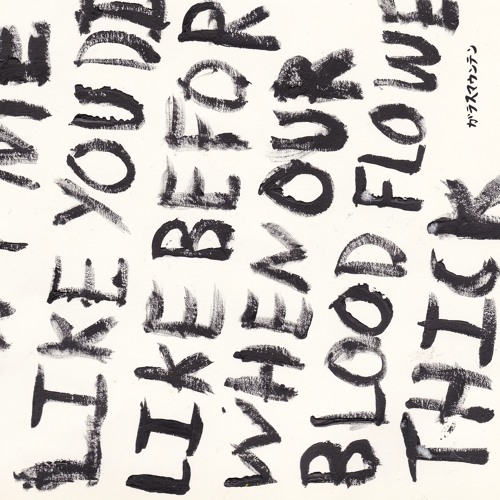 ME
LIKE YOU DI
LIKE BEFOR
WHEN OUR
BLOOD FLOWE
THICK
ガラスマウンテン